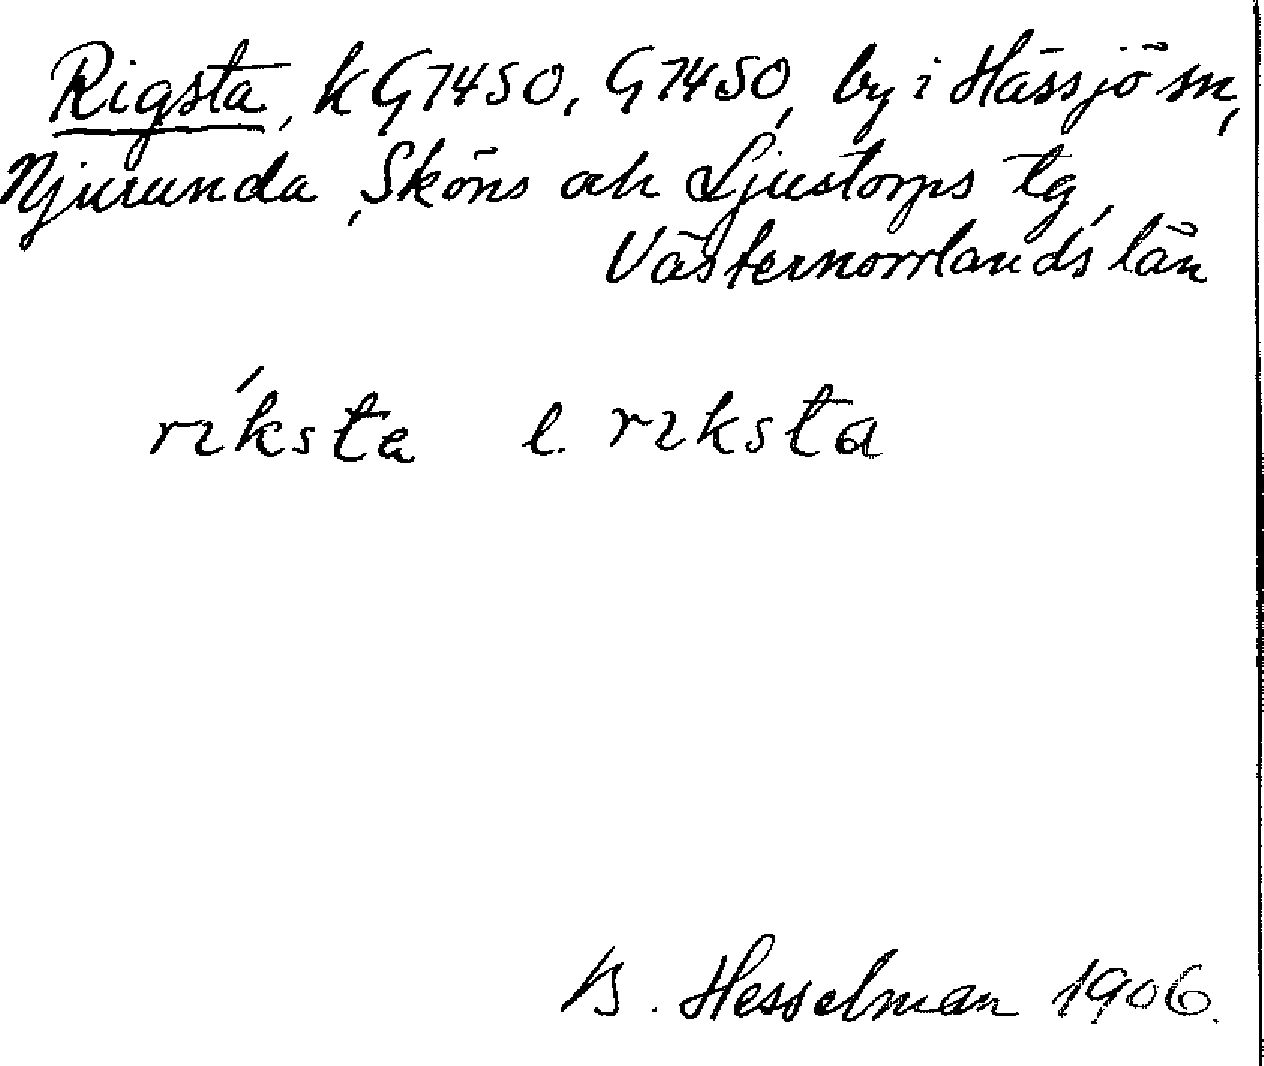 Rigsta, kG7450, G7450, by i Hässjö sn,
Njurunda, Sköns och Ljustorps tg,
Västernorrlands län
ríksta l. riksta
B. Hesselman 1906.